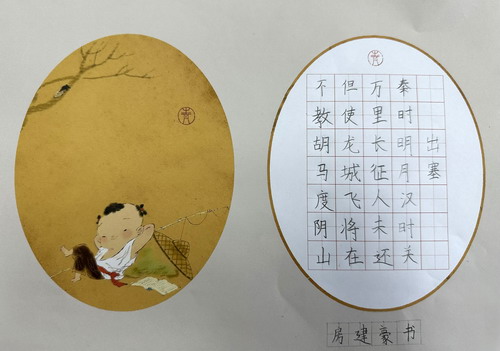 出塞
秦时明月汉时关
万里长征人未还
但使龙城飞将在
不教胡马度阴山
房建豪书